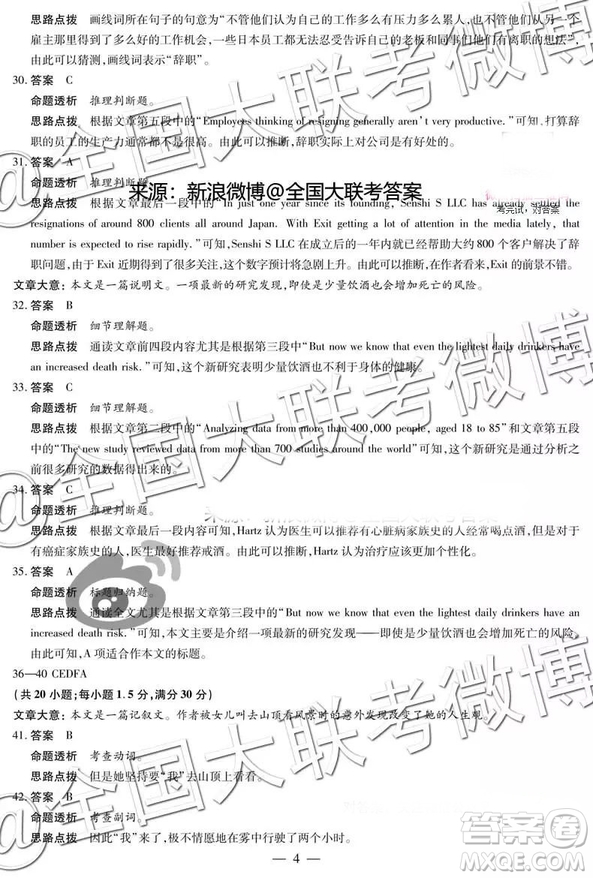 思路点拨　画线词所在句子的句意为“不管他们认为自己的工作多么有压力多么累人，也不管他们的下一个
雇主看到了多么好的工作机会，一些日本员工都无法忍受告诉自己的老板和同事他们有离职的意向。”
由此可以猜测，画线词表示“辞职”。
30. 答案　C
命题透析　推理判断题。
思路点拨　根据文章第五段中的“Employers thinking of resigning generally aren't very productive.”可知，打算辞
职的员工的生产力通常都不是很高。由此可以推断，辞职实际上对公司是有好处的。
31. 答案　A
命题透析　推理判断题。
来源：新浪微博@全国大联考答案
考完试，对答案
思路点拨　根据文章最后一段中的“In just one year since its founding, Senshi S LLC has already settled the
resignations of around 800 clients all around Japan. With Exit getting a lot of attention by the media lately, that
number is expected to rise rapidly.”可知，Senshi S LLC 在成立后的一年内就已经帮助大约 800 个客户解决了辞
职问题，由于 Exit 近期受到大量关注，这个数字预计将急剧上升。由此可以推断，在作者看来，Exit 的前景不错。
文章大意：本文是一篇说明文。一项最新的研究发现，即使是少量饮酒也会增加死亡的风险。
32. 答案　B
命题透析　细节理解题。
思路点拨　通读文章前四段内容尤其是根据第三段中“But now we know that even the lightest daily drinkers have
an increased death risk.”可知，这个新研究表明少量饮酒也不利于身体的健康。
33. 答案　C
命题透析　细节理解题。
思路点拨　根据文章第二段中的“Analyzing data from more than 400,000 people, aged 18 to 85”和文章第五段
中的“The new study reviewed data from more than 700 studies around the world”可知，这个新研究是通过分析之
前很多研究的数据得出来的。
34. 答案　C
命题透析　推理判断题。
思路点拨　根据文章最后一段内容可知，Hartz 认为医生可以推荐有心脏病家族史的人经常喝点酒，但是对于
有癌症家族史的人，医生最好推荐戒酒。由此可以推断，Hartz 认为治疗应该更个性化。
35. 答案　A
命题透析　标题归纳题。
思路点拨　根据全文尤其是根据文章第三段中的“But now we know that even the lightest daily drinkers have an
increased death risk.”可知，本文主要是介绍一项最新的研究发现——即使是少量饮酒也会增加死亡的风险。
由此可知，A 项适合作本文的标题。
36—40 CEDFA
(共 20 小题；每小题 1.5 分，满分 30 分)
文章大意：本文是一篇记叙文。作者被女儿叫去山顶看风景时的意外发现改变了她的人生观。
41. 答案　B
命题透析　考查动词。
思路点拨　但是她坚持要“我”去山顶上看看。
42. 答案　B
命题透析　考查副词。
思路点拨　因此“我”来了，极不情愿地在雾中行驶了两个小时。
— 4 —
@全国大联考微博
答案圈
MXQE.COM